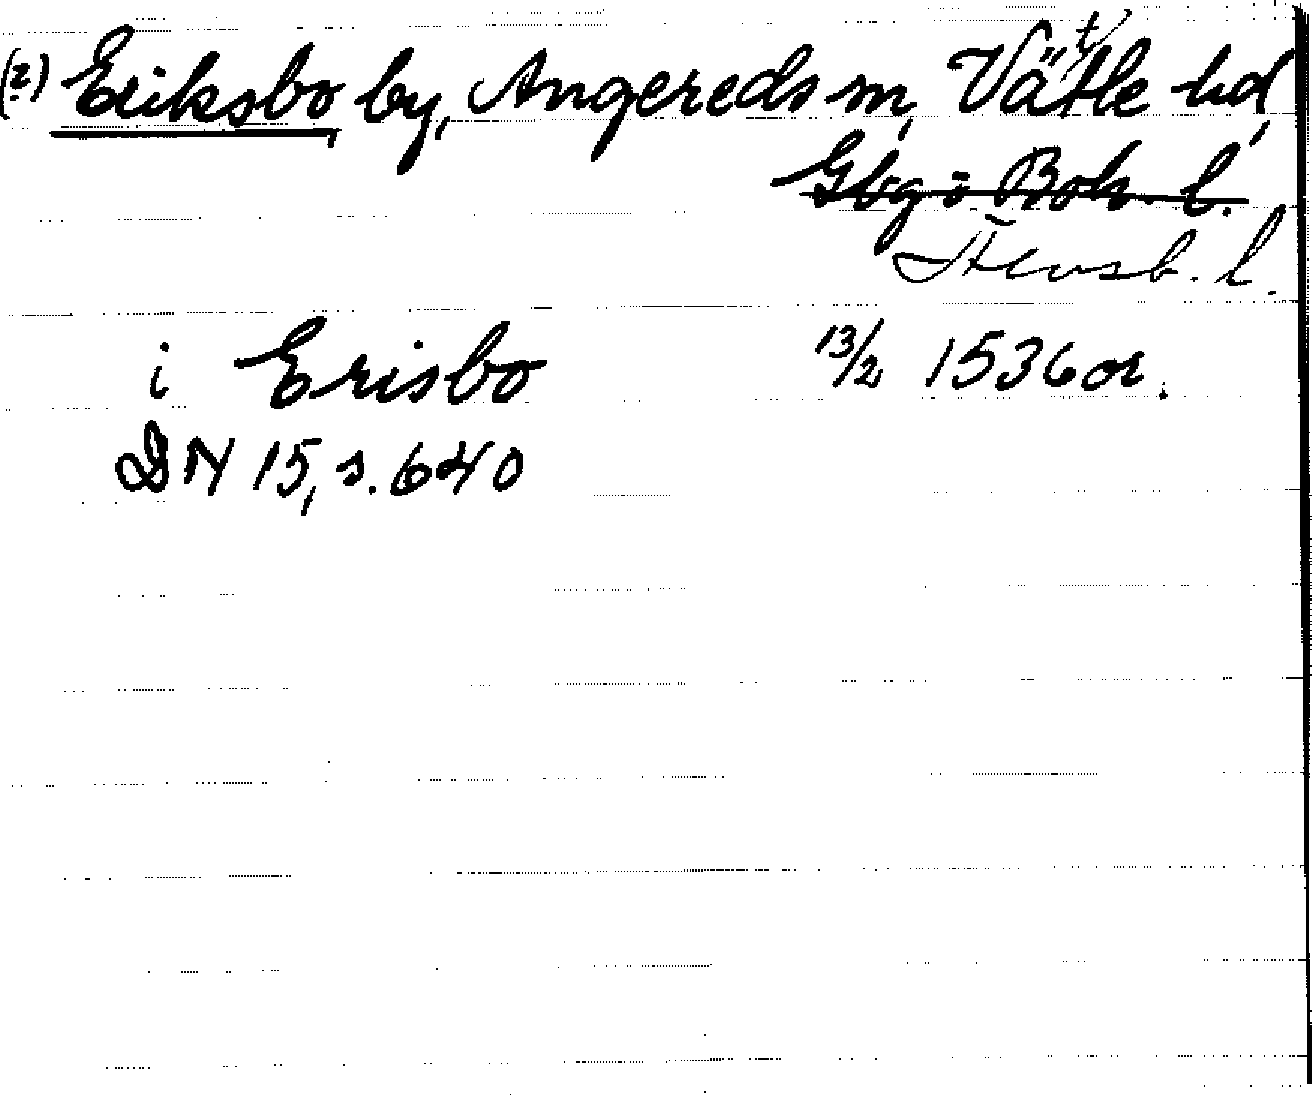 (?) Eriksbo by, Angereds sn, Vättle hd,
Gbg o Boh. l.
Älvsb. l.
i Erisbo 13/2 1536 or.
DN 15, s. 640